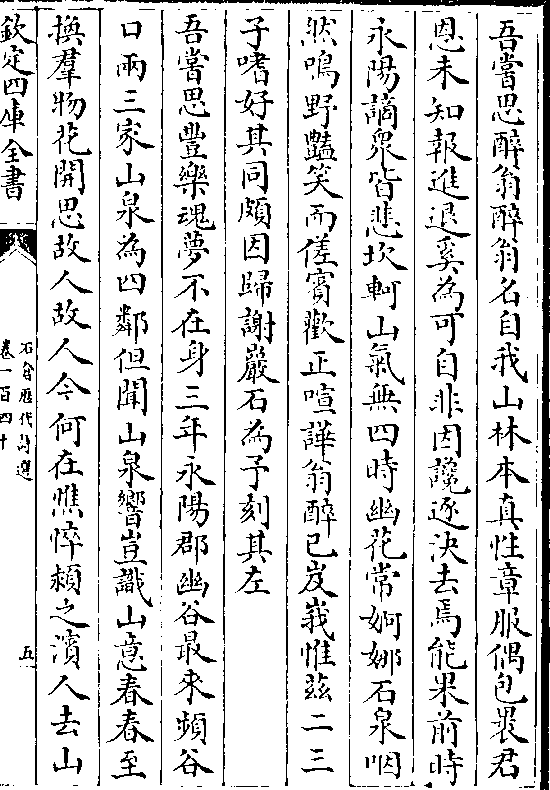 吾嘗思醉翁醉翁名自我山林本真性章服偶包裹君
恩未知報進退奚為可自非因讒逐決去焉能果前時
永陽謫衆皆悲坎軻山氣無四時幽花常婀娜石泉咽
然鳴野豔笑而傞賓歡正喧譁翁醉已岌峩惟兹二三
子嗜好其同頗因歸謝巖石為子刻其左
吾嘗思豐樂魂夢不在身三年永陽郡幽谷最來頻谷
口兩三家山泉為四鄰但聞山泉響豈識山意春春至
換羣物花開思故人故人今何在憔悴潁之濱人去山
欽定四庫全書
石倉歷代詩選
卷一百四十
五